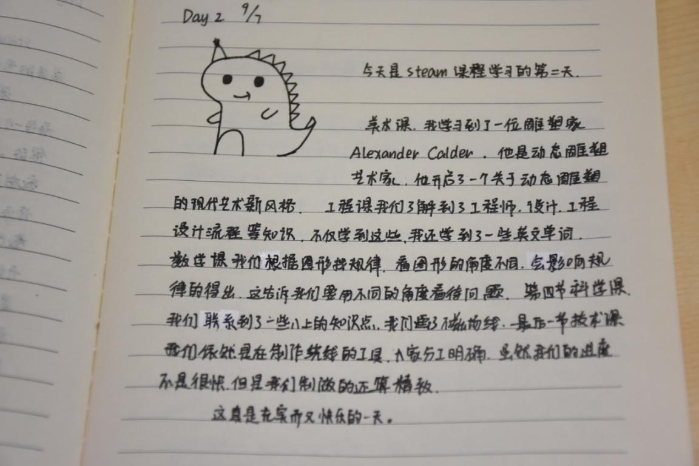 Day 2 9/7
今天是 steam 课程学习的第二天.
美术课,我学习到了一位雕塑家
Alexander Calder. 他是动态雕塑
艺术家. 他开启了一个关于动态雕塑
的现代艺术新风格. 工程课我们了解到了工程师,设计,工程
设计流程等知识.不仅学到这些,我还学到了一些英文单词.
数学课我们根据图形找规律.看图形的角度不同,会影响规
律的得出.这告诉我们要用不同的角度看待问题. 第四节科学课.
我们联系到了一些八上的知识点,我们画了磁感线.最后一节技术课
我们依然是在制作绕线的工具.大家分工明确.虽然我们的进度
不是很快.但是我们制做的还算精致.
这真是充实而又快乐的一天。